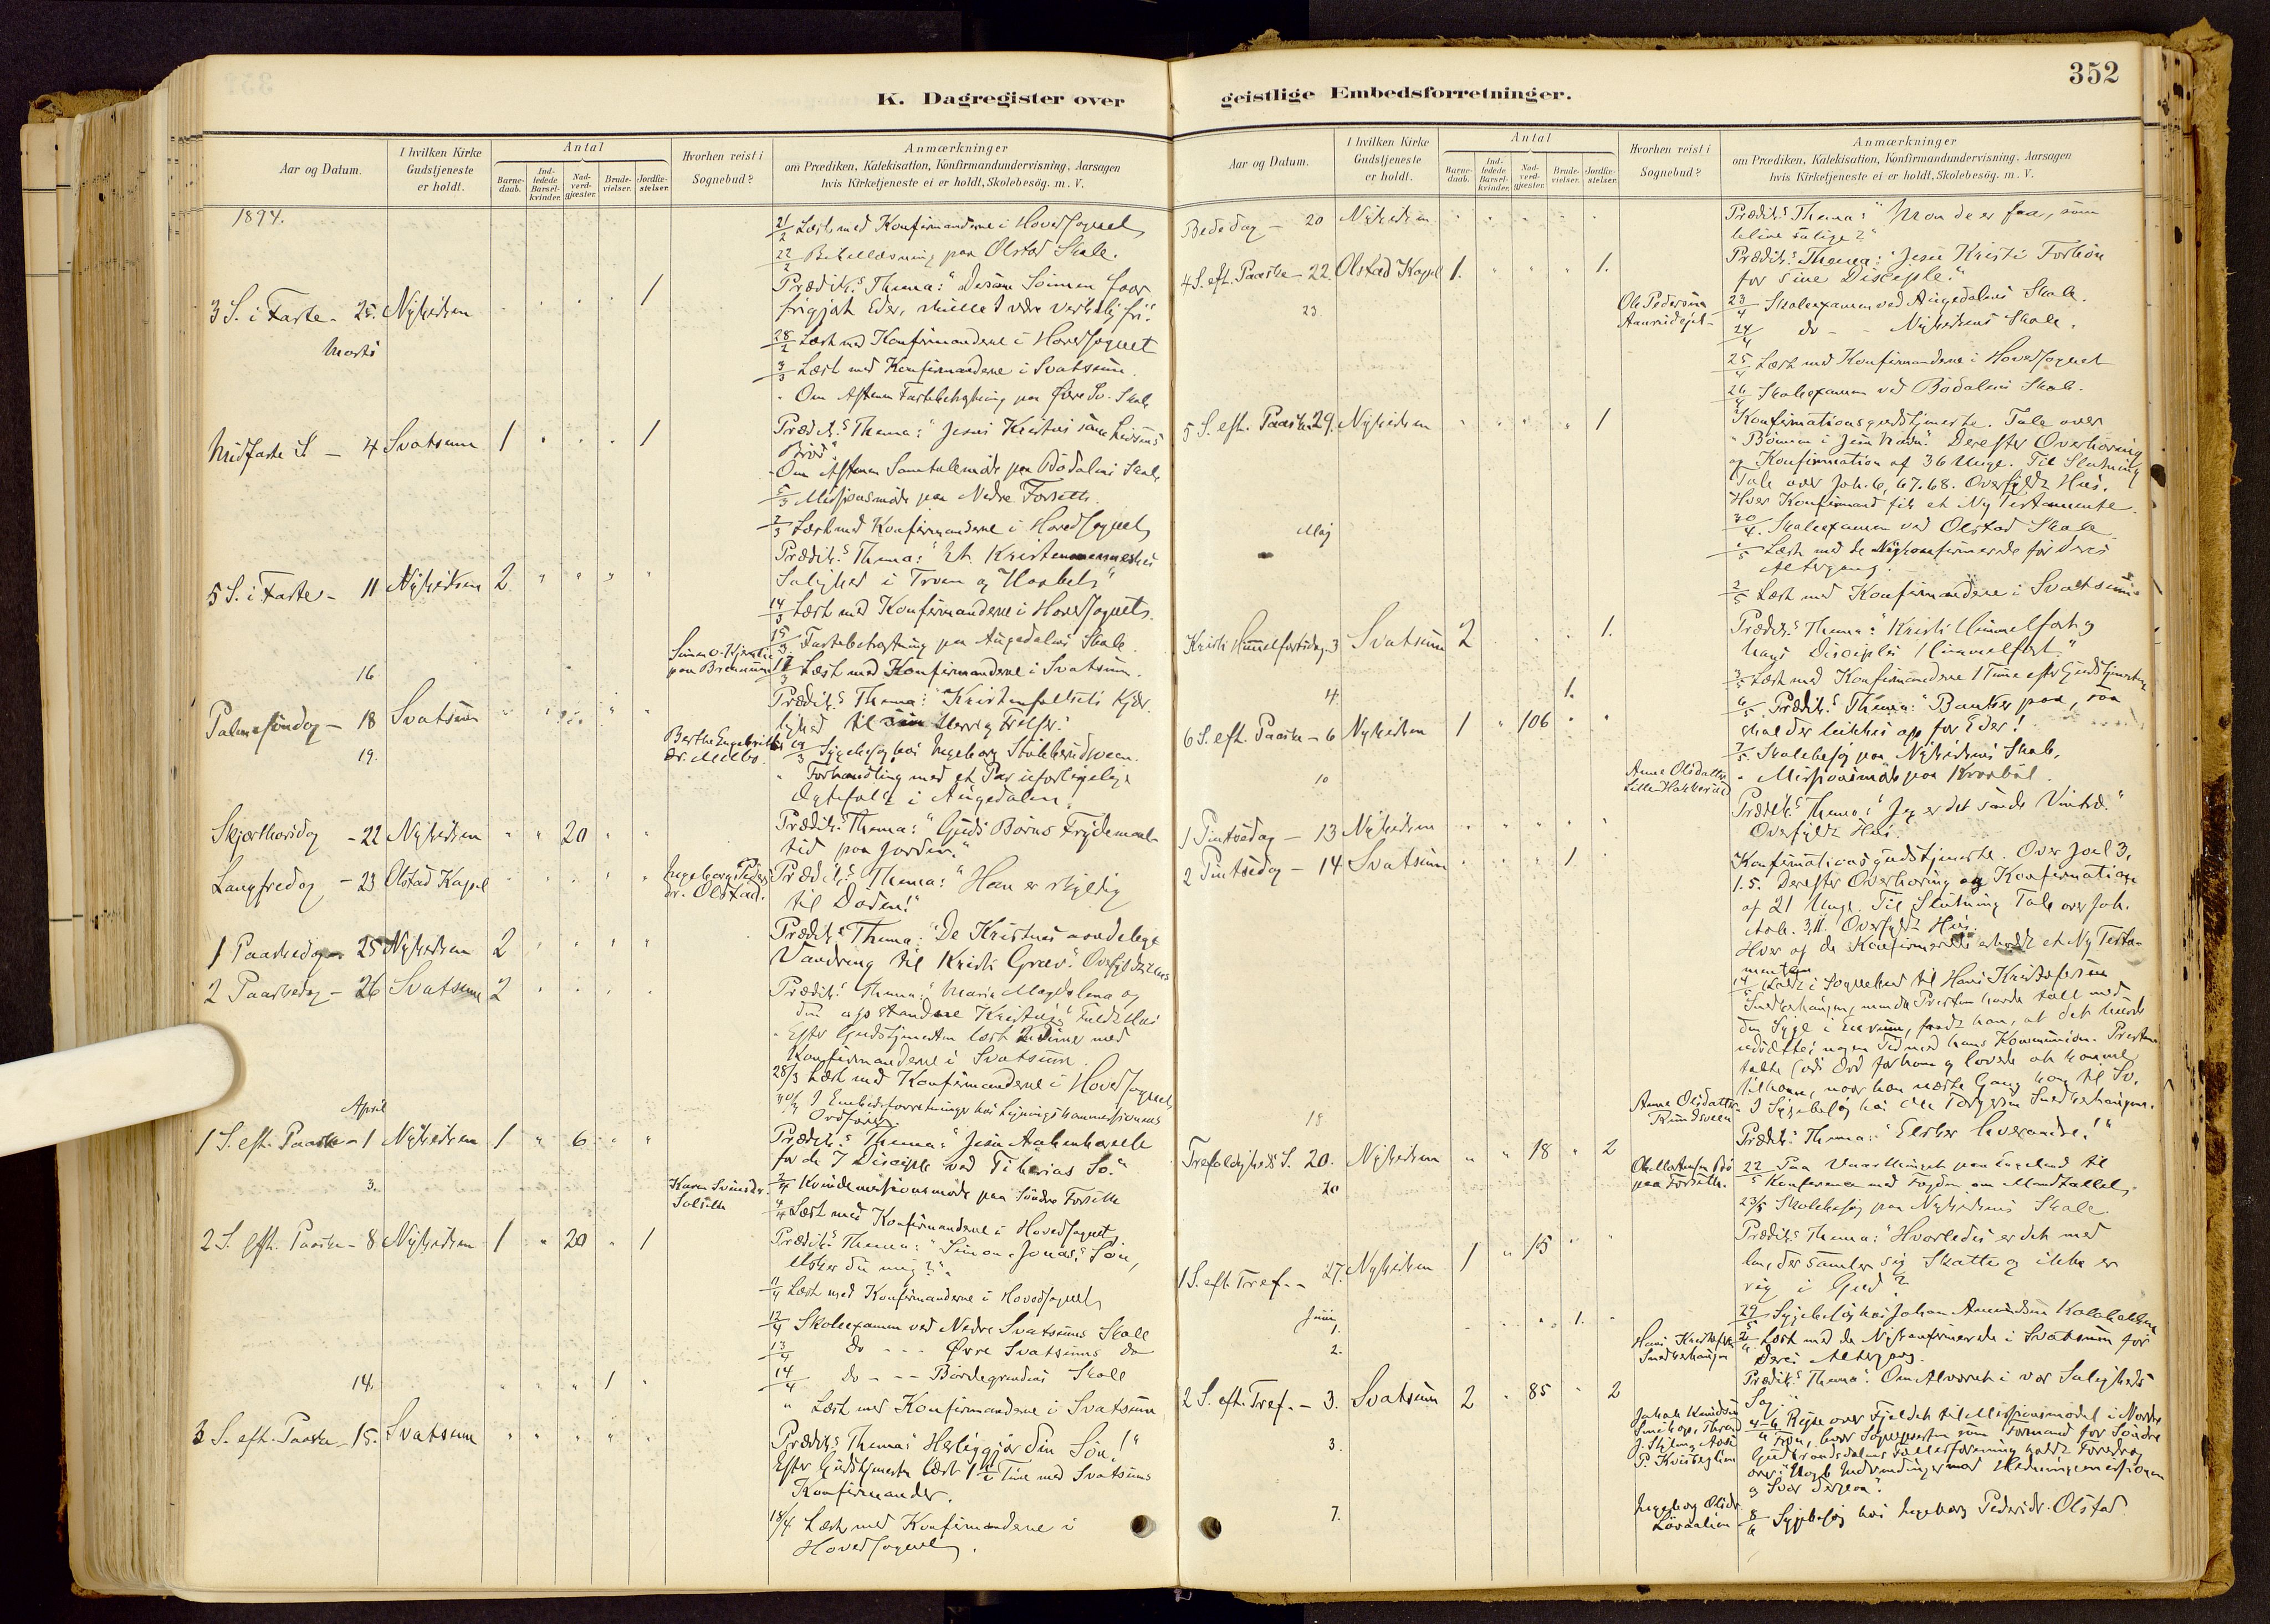 K. Dagregister over
Aar og Datum.
I hvilken Kirke Gudstjeneste er holdt.
Antal
Barne-daab.
Ind-ledede Barsel-kvinder.
Nad-verd-gjæster.
Brude-vielser.
Jordfæ-stelser.
Hvorhen reist i Sognebud?
Anmærkninger
om Prædiken, Katekisation, Konfirmandundervisning, Aarsagen
hvis Kirketjeneste ei er holdt, Skolebesøg. m. V.
1894.
21/2 Læst med Konfirmanderne i Hovedsognet
22/2 Bibellæsning paa Olstad Skole.
3 S. i Faste - 25. Nykirken " " " " 1
Prædik.s Thema: "Dersom Sønnen faar
frigjort Eder, skulle I være virkelig fri."
Marts
28/2 Læst med Konfirmanderne i Hovedsognet
3/3 Læst med Konfirmanderne i Svatsum.
" Om Aftenen Fastebetragtning paa Øvre Sv. Skole
Midfaste S - 4 Svatsum 1 " " " 1
Prædik.s Thema: "Jesus Kristus som Livsens
Brød."
Om Aftenen Samtalemøde paa Bødalens Skole
5/3 Missionsmøde paa Nedre Forseth.
7/3 Læst med Konfirmanderne i Hovedsognet
5 S. i Faste - 11 Nykirken 2 " " " "
Prædik.s Thema: "Et Kristenmenneskes
Salighed i Troen og Haabet"
14/3 Læst med Konfirmanderne i Hovedsognet.
15/3 Fastebetragtning paa Augedalens Skole.
16
paa
17/3 Læst med Konfirmanderne i Svatsum.
Palmesøndag - 18 Svatsum
Prædik.s Thema: "Kristenfolkets Kjær-
lighed til sin Herre og Frelser."
19.
Berthe Engebrits
dr. Melbø.
19/3 Sygebesøg hos Ingeborg
" Forhandling med et Par uforligelige
Ægtefolk i Augedalen.
Skjærthorsdag - 22 Nykirken " " 20 " "
Prædik.s Thema: "Guds Børns Frydemaal-
tid paa Jorden."
Langfredag - 23 Olstad Kapel " " " " "
Ingeborg Peders
dr. Olstad.
Prædik.s Thema: "Han er skyldig
til Døden!"
1 Paaskedag - 25 Nykirken 2 " " " "
Prædik.s Thema: "De Kristnes aandelige
Vandring til Kristi Grav." Overfyldt Hus
2 Paaskedag - 26 Svatsum 2 " " " "
Prædik.s Thema: "Maria Magdalena og
den opstandne Kristus." Fuldt Hus
- Efter Gudstjenesten læst 2 Timer med
Konfirmanderne i Svatsum.
28/3 Læst med Konfirmanderne i Hovedsognet
I Embedsforretninger hos Ligningskommissionens
Ordfører.
April
1 S. eft. Paaske - 1 Nykirken 1 " 6 " "
Prædik.s Thema: "Jesu Aabenbarelse
for de 7 Disciple ved Tiberias Sø."
3.
Karen
2/4 Kvindemissionsmøde paa Søndre Forseth
4/4 Læst med Konfirmanderne i Hovedsognet.
2 S. eft. Paaske - 8 Nykirken 1 " 20 " 1
Prædik.s Thema: "Simon, Jonas's Søn,
elsker du mig?"
11/4 Læst med Konfirmanderne i Hovedsognet
12/4 Skoleexamen ved Nedre Svatsums Skole
13/4 do - - - Øvre Svatsums do
14. " " " 1 "
14/4 do - - - Skole
" Læst med Konfirmanderne i Svatsum
3 S. eft. Paaske - 15. Svatsum " " " " "
Prædik.s Thema: "Herliggjør din Søn!"
Efter Gudstjenesten læst 1 Time med Svatsums
Konfirmander.
18/4 Læst med Konfirmanderne i
Hovedsognet.
352
geistlige Embedsforretninger.
Aar og Datum.
I hvilken Kirke Gudstjeneste er holdt.
Antal
Barne-daab.
Ind-ledede Barsel-kvinder.
Nad-verd-gjæster.
Brude-vielser.
Jordfæ-stelser.
Hvorhen reist i Sognebud?
Anmærkninger
om Prædiken, Katekisation, Konfirmandundervisning, Aarsagen
hvis Kirketjeneste ei er holdt, Skolebesøg. m. V.
Bededag - 20 Nykirken " " " " "
Prædik.s Thema: "Mon de er faa, som
blive salige?"
4 S. eft. Paaske - 22. Olstad Kapel 1. " " " 1.
Prædik.s Thema: "Jesu Kristi Forbøn
for sine Disciple."
23.
Ole Pedersen
23/4 Skoleexamen ved Augedalens Skole.
24/4 do - - Nykirkens Skole.
25/4 Læst med Konfirmanderne i Hovedsognet
26/4 Skoleexamen ved Bødalens Skole.
5 S. eft. Paaske 29. Nykirken " " " " 1
Konfirmationsgudstjeneste. Tale over
"Bønnen i Jesu Navn." Derefter Overhøring
og Konfirmation af 36 Unge. Til Slutning
Tale over Joh. 6, 67.68. Overfyldt Hus.
Hver Konfirmand fik et Ny Testamente.
Maj
30/4. Skoleexamen ved Olstad Skole
1/5 Læst med de Nykonfirmerede før deres
Altergang.
2/5 Læst med Konfirmanderne i Svatsum
Kristi Himmelfartsdag 3 Svatsum 2 " " " 1.
Prædik.s Thema: "Kristi Himmelfart og
hans Disciples Himmelfart."
3/5 Læst med Konfirmanderne 1 Time efter Gudstjenesten
4. 1.
6 S. eft. Paaske - 6 Nykirken 1 " 106 " "
6/5 Prædik.s Thema: "Banker paa, saa
skal der lukkes op for Eder!"
7/5. Skolebesøg paa Nykirkens Skole.
10
Anne Olsdatter
Lille
" Missionsmøde paa
1 Pintsedag - 13 Nykirken " " " " "
Prædik.s Thema: "Jeg er det sande Vintræ."
Overfyldt Hus.
2 Pintsedag - 14 Svatsum " " " 1 "
Konfirmationsgudstjeneste. Over Joel 3,
1.5. Derefter Overhøring og Konfirmation
af 21 Unge. Til Slutning Tale over Joh.
Aab. 3,11. Overfyldt Hus.
Hver af de Konfirmerede erholdt et Ny Testa-
mente
14/5 Kaldt i Sognebud til Hans Kristofersen
Snekkerhaugen, men da Presten havde talt med
den Syge i Enrum, fandt han, at det burde
udsættes nogen Tid med hans Kommunion. Presten
talte Guds Ord for ham og lovede at komme
til ham, naar han næste Gang kom til Sv.
18
Anne Olsdatter
I Sygebesøg hos Ole
Trefoldigheds S. 20. Nykirken " " 18 " 2
Prædik.s Thema: "Elsker hverandre!"
20
paa Forseth.
22/5 Paa til
Konferance med Fogden om Mandtallet.
23/5 Skolebesøg paa Nykirkens Skole.
1 S. eft. Tref. - 27. Nykirken 1 " 15 " "
Prædik.s Thema: "Hvorledes er det med
den, der samler sig Skatte og ikke er
rig i Gud?"
Juni
1. " " " 1. "
29/5 Sygebesøg hos Johan Amundsen
2.
Hans Kristofersen
Snekkerhaugen
2/6 Læst med de Nykonfirmerede i Svatsum før
deres Altergang.
2 S. eft. Tref. - 3. Svatsum 2 " 85 " 2
Prædik.s Thema: "Om Alvoret i vor Saligheds
Sag."
3.
4-6/6 Rejse over Fjeldet til Missionsmødet i Nordre
Fron, hvor Sognepresten som Formand for Søndre
Gudbrandsdalens holdt Foredrag
over: "Nogle Indvendinger mod Hedningemissionen
og Svar derpaa".
7.
Ingeborg Olsdr.
8/6 Sygebesøg hos Ingeborg Pedersdr. Olstad.